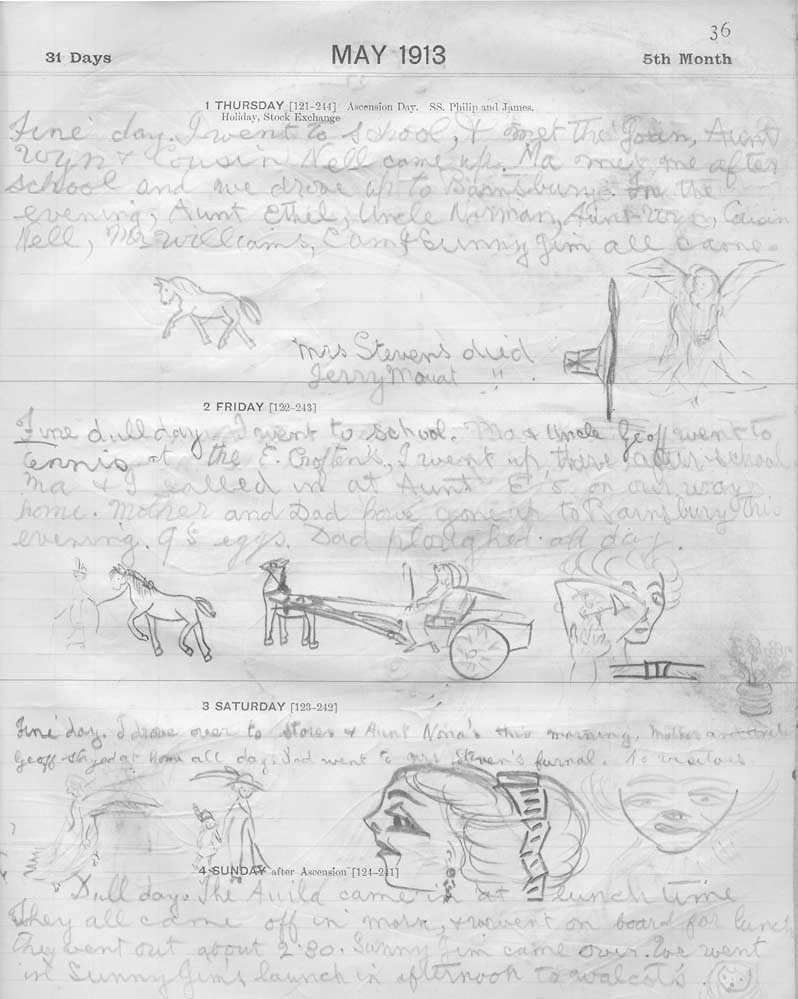 36
31 Days MAY 1913 5th Month
1 THURSDAY [121-244] Ascension Day. SS. Philip and James.
Holiday, Stock Exchange
Fine day. I went to school, & met the Aunt
Wyn & Cousin Nell came up. Ma met me after
school and we drove up to Barnsbury. In the
evening, Aunt Ethel, Uncle Norman, Aunt Wyn, Cousin
Nell, Mrs Williams, Cam & Sunny Jim all came.
Mrs Stevens died
Gerry Mouat !!
2 FRIDAY [122-243]
Fine dull day. I went to school. Ma & Uncle Geoff went to
tennis at the E. Crofton's. I went up there after school
Ma & I called in at Aunt E's on our way
home. Mother and Dad have gone up to Barnsbury this
evening. 98 eggs. Dad ploughed all day.
3 SATURDAY [123-242]
Fine day. I drove over to Stores & Aunt Nona's this morning. Mother and Uncle
Geoff at home all day. Dad went to Mrs Steven's furnal. No visitors.
4 SUNDAY after Ascension [124-241]
Dull day. The came in at lunch time
They all came off in & went on board for lunch
they went out about 2.30. Sunny Jim came over. We went
in Sunny Jim's launch in afternoon to Walcot's.